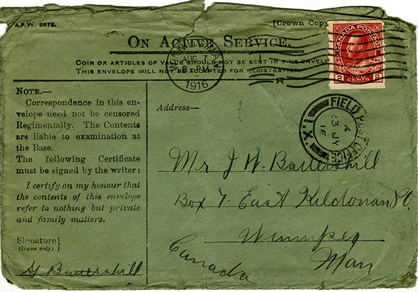 A.F.W. 3078.
[Crown Cop
On Active Service.
Coin or articles of value should not be sent in this envelo
This envelope will not be for registration.
1916
CANADA POSTAGE
2 CENTS 2
FIELD POST OFFICE
Note.—
Correspondence in this en-
velope need not be censored
Regimentally. The Contents
are liable to examination at
the Base.
The following Certificate
must be signed by the writer:
I certify on my honour that
the contents of this envelope
refer to nothing but private
and family matters.
Signature}
(Name only)
Address—
Mr J W. Battershill
Box 7. East Kildonan P.O.
Winnipeg
Man
Canada
Battershill